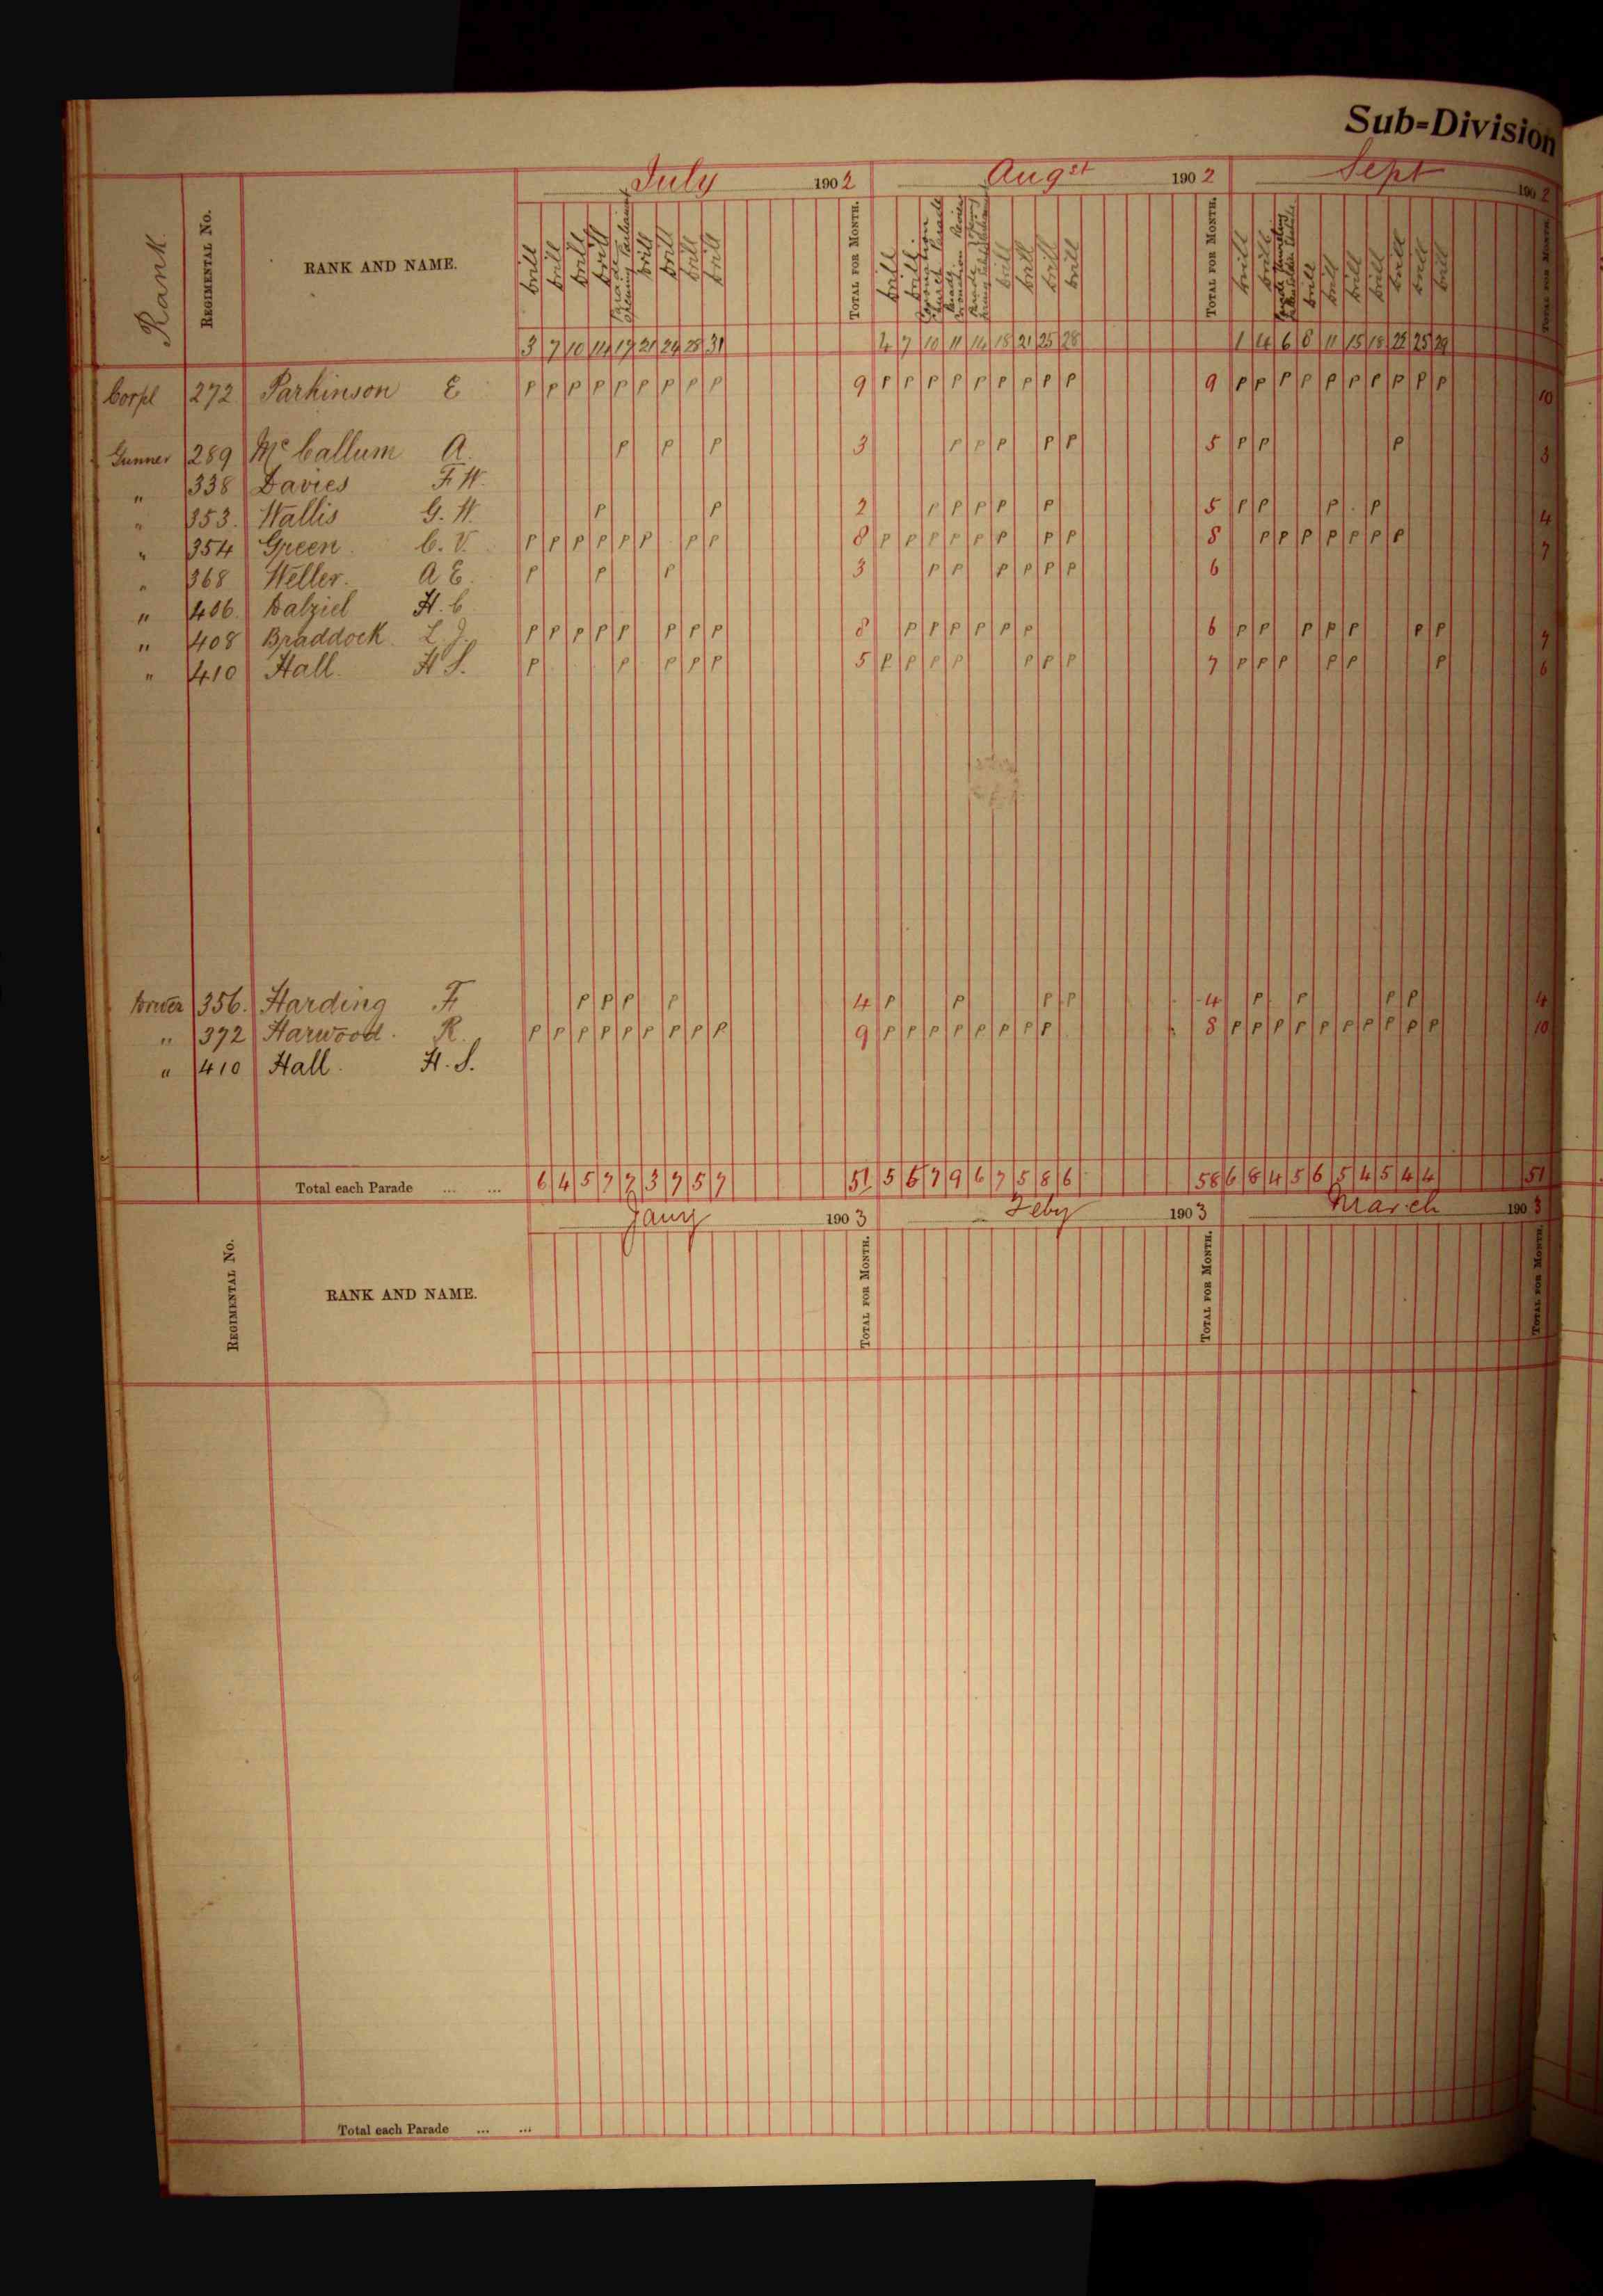 Sub=Division
July 1902 Augst 1902 Sept 1902
Rank. REGIMENTAL No. RANK AND NAME.
Drill Drill Drill Drill Parade Opening Parliament Drill Drill Drill Drill TOTAL FOR MONTH.
Drill Drill. Coronation Church Parade Parade Coronation Review Parade Drill Drill Drill Drill TOTAL FOR MONTH.
Drill Drill Drill Drill Drill Drill Drill Drill Drill TOTAL FOR MONTH
3 7 10 14 17 21 24 28 31 4 7 10 11 14 18 21 25 28 1 4 6 8 11 15 18 22 25 29
Corpl 272 Parkinson E P P P P P P P P P 9 P P P P P P P P P 9 P P P P P P P P P P 10
Gunner 289 McCallum A. P P P 3 P P P P P 5 P P P 3
" 338 Davies F W.
" 353. Wallis G. W. P P 2 P P P P P 5 P P P P 4
" 354 Green. C. V. P P P P P P P P 8 P P P P P P P P 8 P P P P P P P 7
" 368 Weller. A E. P P P 3 P P P P P P 6
" 406. Dalziel H. C
" 408 Braddock. L. J. P P P P P P P P 8 P P P P P P 6 P P P P P P P 7
" 410 Hall. H S. P P P P P 5 P P P P P P P 7 P P P P P P 6
Driver 356. Harding F P P P P 4 P P P P 4 P P P P 4
" 372 Harwood. R. P P P P P P P P P 9 P P P P P P P P 8 P P P P P P P P P P 10
" 410 Hall. H. S.
Total each Parade ... ... 6 4 5 7 7 3 7 5 7 51 5 5 7 9 6 7 5 8 6 58 6 8 4 5 6 5 4 5 4 4 51
Jany 1903 Feby 1903 March 1903
REGIMENTAL No. RANK AND NAME. TOTAL FOR MONTH. TOTAL FOR MONTH. TOTAL FOR MONTH.
Total each Parade ... ...